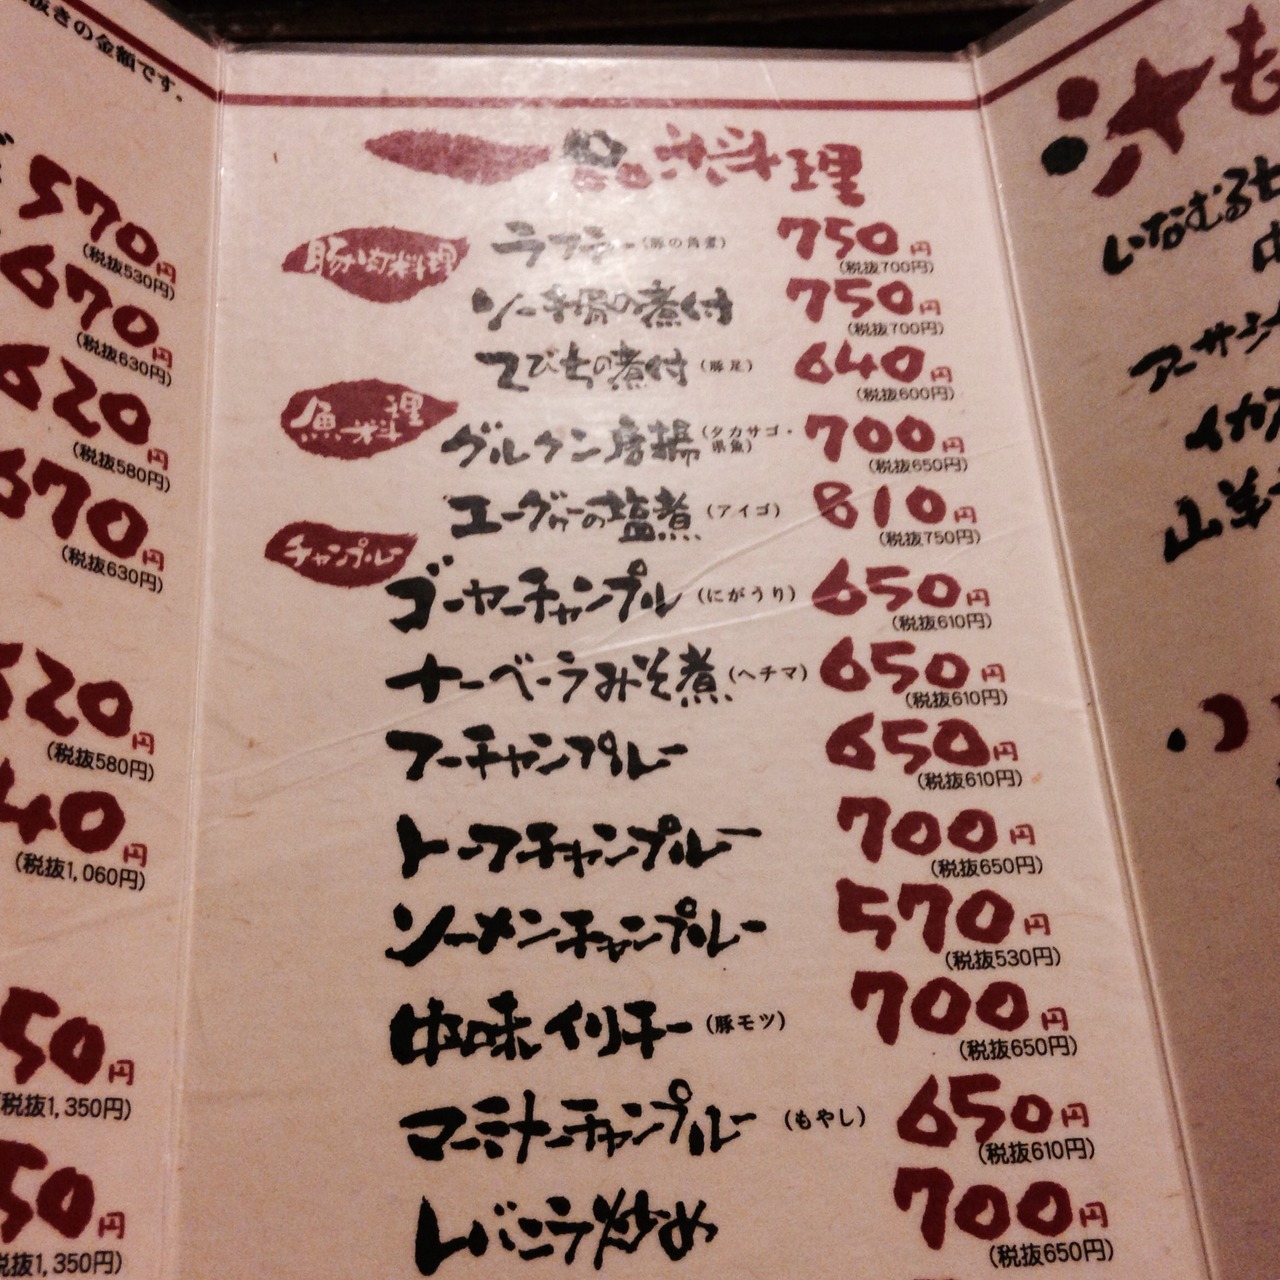 抜きの金額です。
570円
(税抜530円)
670円
(税抜630円)
620円
(税抜580円)
670円
(税抜630円)
520円
(税抜580円)
40円
(税抜1,060円)
50円
税抜1,350円)
50円
税抜1,350円)
一品料理
豚肉料理
ラフテー (豚の角煮) 750円
(税抜700円)
ソーキ骨の煮付 750円
(税抜700円)
てびちの煮付 (豚足) 640円
(税抜600円)
魚料理
グルクン唐揚 (タカサゴ・県魚) 700円
(税抜650円)
エーグヮーの塩煮 (アイゴ) 810円
(税抜750円)
チャンプルー
ゴーヤーチャンプル (にがうり) 650円
(税抜610円)
ナーベーラみそ煮 (ヘチマ) 650円
(税抜610円)
フーチャンプルー 650円
(税抜610円)
トーフチャンプルー 700円
(税抜650円)
ソーメンチャンプルー 570円
(税抜530円)
中味イリチー (豚モツ) 700円
(税抜650円)
マーミナーチャンプルー (もやし) 650円
(税抜610円)
レバニラ炒め 700円
(税抜650円)
汁も
いなむるち
アーサー
イカ
山羊